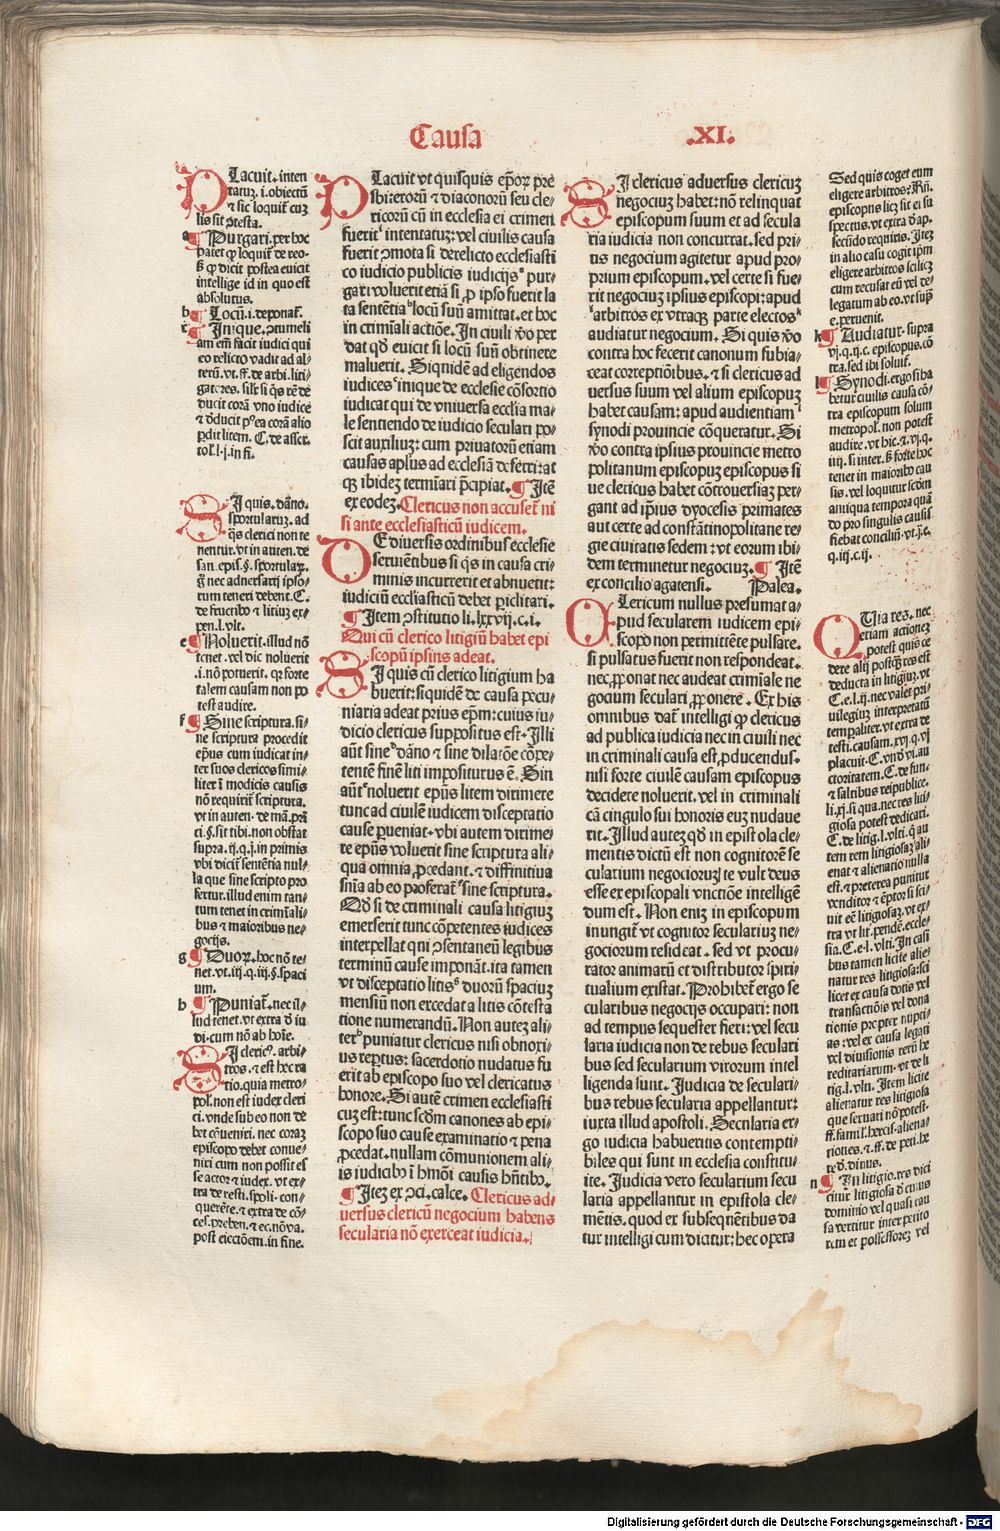 Causa
.XI.
PLacuit. inten
tatuꝫ. i. obiectū
⁊ sic loquitᷣ cuꝫ
lis sit ꝯtesta.
a ¶ Purgari. per hoc
patet ꝙ loquitᷣ de reo.
intellige id in quo est
absolutus.
b ¶ Locū. i. deponatᷣ.
c ¶ Inique. ꝯtumeli
am em̄ facit iudici qui
eo relicto vadit ad al⸗
terū. vt. ff. de arbi. liti⸗
ducit corā vno iudice
⁊ ꝺducit pꝰea corā alio
SI quis. dāno.
sportularuꝫ. ad
q̄s clerici non te
nentur. vt in auten. de
san. epis. §. sportulaꝝ.
q̄ nec adnersarij ipso⸗
rum teneri debent. C.
de fructibꝰ ⁊ litiuꝫ ex⸗
pen. l. vlt.
e ¶ Noluerit. illud nō
tenet. vel dic noluerit
.i. nō potuerit. q forte
talem causam non po
test audire.
f ¶ Sine scriptura. si⸗
ne scriptura procedit
ep̄us cum iudicat in⸗
ter suos clericos simi⸗
liter ī modicis causis
nō requiritᷣ scriptura.
ci. §. sit tibi. non obstat
supra. ij. q. j. in primis
vbi dicitᷣ sentētia nul⸗
la que sine scripto pro
fertur. illud enim tan⸗
tum tenet in crimīali⸗
bus ⁊ maioribus ne⸗
gocijs.
g ¶ Duoꝝ. hoc nō te⸗
net. vt. iij. q. iij. §. spaci
um.
h ¶ Puniatᷣ. nec il⸗
lud tenet. vt extra ꝺ iu
di. cum nō ab hoīe.
SI clericꝰ. arbi⸗
tros. ⁊ est hec ra
tio. quia metro⸗
pol. non est iudex cleri
ci. vnde sub eo non de
bet cōueniri. nec coraꝫ
episcopo debet conue⸗
niri cum non possit es
se actor ⁊ iudex. vt ex⸗
tra de resti. spoli. con⸗
querēte. ⁊ extra de cō⸗
ces. preben. ⁊ ec. nō va.
post eiectōem. in fine.
PLacuit vt quisquis ep̄oꝝ pre
sbiterorū ⁊ diaconorū seu cle⸗
ricorū cū in ecclesia ei crimen
fuerit intentatuꝫ: vel ciuilis causa
fuerit ꝯmota si derelicto ecclesiasti
co iudicio publicis iudicijs pur⸗
gari voluerit etiā si ꝓ ipso fuerit la
ta sentētia locū suū amittat. et hoc
in crimīali actiōe. In ciuili ꝟo per
dat qd̄ euicit si locū suū obtinere
maluerit. Siquidē ad eligendos
iudices inique de ecclesie cōsortio
iudicat qui de vniuersa ecclīa ma⸗
le sentiendo de iudicio seculari po⸗
scit auxiliuꝫ: cum priuatorū etiam
causas apl̄us ad ecclesiā deferri: at
qꝫ ibidez termīari p̄cipiat. ¶ Itē
ex eodeꝫ. Clericus non accusetᷣ ni
si ante ecclesiasticū iudicem.
DE diuersis ordinibus ecclesie
seruiētibus si q̄s in causa cri⸗
minis incurrerit et abnuetit:
iudiciū eccl̄iasticū debet ꝑiclitari.
¶ Item ꝯstitutio li. lxxvij. c. i.
Qui cū clerico litigiū habet epi
scopū ipsius adeat.
SI quis cū clerico litigium ha
buerit: siquidē de causa pecu⸗
niaria adeat prius ep̄m: cuius iu⸗
dicio clericus suppositus est. Illi
aūt sine dāno ⁊ sine dilatōe cōpe⸗
tentē finē liti impositurus ē. Sin
aūt noluerit ep̄us litem dirimere
tunc ad ciuilē iudicem disceptatio
cause ꝑueniat. vbi autem dirime⸗
te ep̄us voluerit sine scriptura ali⸗
qua omnia ꝓcedant. ⁊ diffinitiua
sn̄ia ab eo proferatᷣ sine scriptura.
Qd̄ si de criminali causa litigiuꝫ
emerserit tunc cōpetentes iudices
interpellat qui p̄sentaneū legibus
terminū cause imponāt. ita tamen
vt disceptatio litis duorū spaciuꝫ
mensiū non excedat a litis cōtesta
tione numerandū. Non autez ali⸗
ter puniatur clericus nisi obnoxi⸗
us reꝑtus: sacerdotio nudatus fu
erit ab episcopo suo vel clericatus
honore. Si autē crimen ecclesiasti
cuꝫ est: tunc scd̄m canones ab epi⸗
scopo suo cause examinatio ⁊ pena
ꝓcedat. nullam cōmunionem ali⸗
is iudicibꝰ ī hmōi causis hn̄tibꝰ.
¶ Iteꝫ ex ꝯci. calce. Clericus ad⸗
uersus clericū negocium habens
secularia nō exerceat iudicia.
SI clericus aduersus clericuꝫ
negociuꝫ habet: nō relinquat
episcopum suum et ad secula
ria iudicia non concurrat. sed pri⸗
us negocium agitetur apud pro⸗
prium episcopum. vel certe si fue⸗
rit negociuꝫ ipsius episcopi: apud
arbitros ex vtraqꝫ parte electos
audiatur negocium. Si quis ꝟo
contra hoc fecerit canonum subia⸗
ceat correptiōibus. ⁊ si clericus ad
uersus suum vel alium episcopuꝫ
habet causam: apud audientiam
synodi prouincie cōqueratur. Si
ꝟo contra ipsius prouincie metro
politanum episcopuꝫ episcopus si
ue clericus habet cōtrouersiaꝫ per⸗
gant ad ip̄ius dyocesis primates
aut certe ad constātinopolitane re⸗
gie ciuitatis sedem: vt eorum ibi⸗
dem terminetur negociuꝫ. ¶ Itē
ex concilio agatensi. Palea.
CLericum nullus presumat a⸗
pud secularem iudicem epi⸗
scopo non permittēte pulsare.
si pulsatus fuerit non respondeat.
nec ꝓponat nec audeat crimiale ne
gocium seculari ꝓponere. Ex his
omnibus datᷣ intelligi ꝙ clericus
ad publica iudicia nec in ciuili nec
in criminali causa est ꝓducendus.
nisi forte ciuilē causam episcopus
decidere noluerit. vel in criminali
cā cingulo sui honoris euꝫ nudaue
rit. Illud autez qd̄ in epistola cle⸗
mentis dictū est non cognitorē se
cularium negocioruꝫ te vult deus
esse ex episcopali vnctiōe intelligē
dum est. Non eniꝫ in episcopum
inungitᷣ vt cognitor seculariuꝫ ne⸗
gociorum resideat. sed vt procu⸗
rator animarū et distributor spiri⸗
tualium existat. Prohibetᷣ ergo se
cularibus negocijs occupari: non
ad tempus sequester fieri: vel secu
laria iudicia non de rebus seculari
bus sed secularium virorum intel
ligenda sunt. Judicia de seculari⸗
bus rebus secularia appellantur:
iuxta illud apostoli. Secularia er⸗
go iudicia habueritis contempti⸗
biles qui sunt in ecclesia constitu⸗
ite. Judicia vero secularium secu
laria appellantur in epistola cle⸗
mētis. quod ex subseqnētibus da
tur intelligi cum dicitur: hec opera
Sed quis coget eum
eligere arbitros: Rn̄.
episcopus licꝫ sit ei su
spectus. vt extra ꝺ ap.
secūdo requiris. Iteꝫ
in alio casu cogit ip̄m
eligere arbitros scilicꝫ
cum recusat eū vel de⸗
legatum ab eo. vt sup̄
e. peruenit.
k ¶ Audiatur. supra
vj. q. ij. c. episcopus. cō
tra. sed ibi soluitᷣ.
l ¶ Synodi. ergo si ha
betur ciuilis causa cō⸗
tra episcopum solum
metropol. non potest
audire. vt hic. ⁊. vj. q.
tenet in maioribꝰ cau
sis. vel loquitur scd̄m
antiqua tempora quā
do pro singulis causis
fiebat conciliū. vt. j. e.
q. iij. c. ij.
QUia res. nec
etiam actionez
potest quis ce
dere alij postqꝫ res est
deducta in litigiuꝫ. vt
C. e. l. ij. nec valet pri⸗
uilegiuꝫ interpretatū
testi. causam. xvj. q. vj
placuit. C. vnꝺ vi. au
ctoritatem. C. de fun⸗
⁊ saltibus reipublice.
li. xj. si qua. nec res liti⸗
giosa potest dedicari.
C. de litig. l. vlti. q̄ au
tem rem litigiosaꝫ ali⸗
enat ⁊ alienatio nulla
est. ⁊ preterea punitur
venditor ⁊ ēptor si sci⸗
uit eē litigiosaꝫ. vt ex⸗
tra vt lit. pendē. eccle⸗
sia. C. e. l. vlti. In casi
bus tamen licite alie⸗
natur res litigiosa: sci
licet ex causa dotis vel
transactiōis vel dona
tionis propter nupti⸗
as: vel ex causa legati
vel diuisionis rerū he
reditariarum. vt de li
tig. l. vln. Item licite
alienatur res litigiosa
que seruari nō potest.
ff. famil. hercis. aliena⸗
tiones. ⁊. ff. de peti. he
re ꝺ. diuus.
n ¶ In litigio. res dici
citur litigiosa ꝺ cuius
dominio vel quasi cau
sa vertitur inter petito
rem et possessorez vel
Digitalisierung gefördert durch die Deutsche Forschungsgemeinschaft - DFG